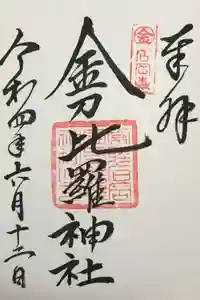 奉拝
金
金刀比羅神社
令和四年六月十二日